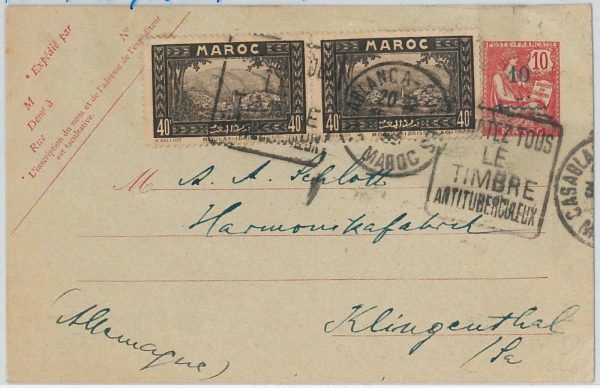 Nº
* Expédié par
M
Demᵗ à
Rue
L'inscription du nom et de l'adresse de l'expéditeur
est facultative.
MAROC
40ᶜ
40ᶜ
MAROC
40ᶜ
40ᶜ
POSTE FRANÇAISE
10
10
CASABLANCA
20
MAROC
TOUS
LE
TIMBRE
ANTITUBERCULEUX
CASABLANCA
M. A. A. Schlott
Harmonikafabrick
Klingenthal
/Sa
(Allemagne)